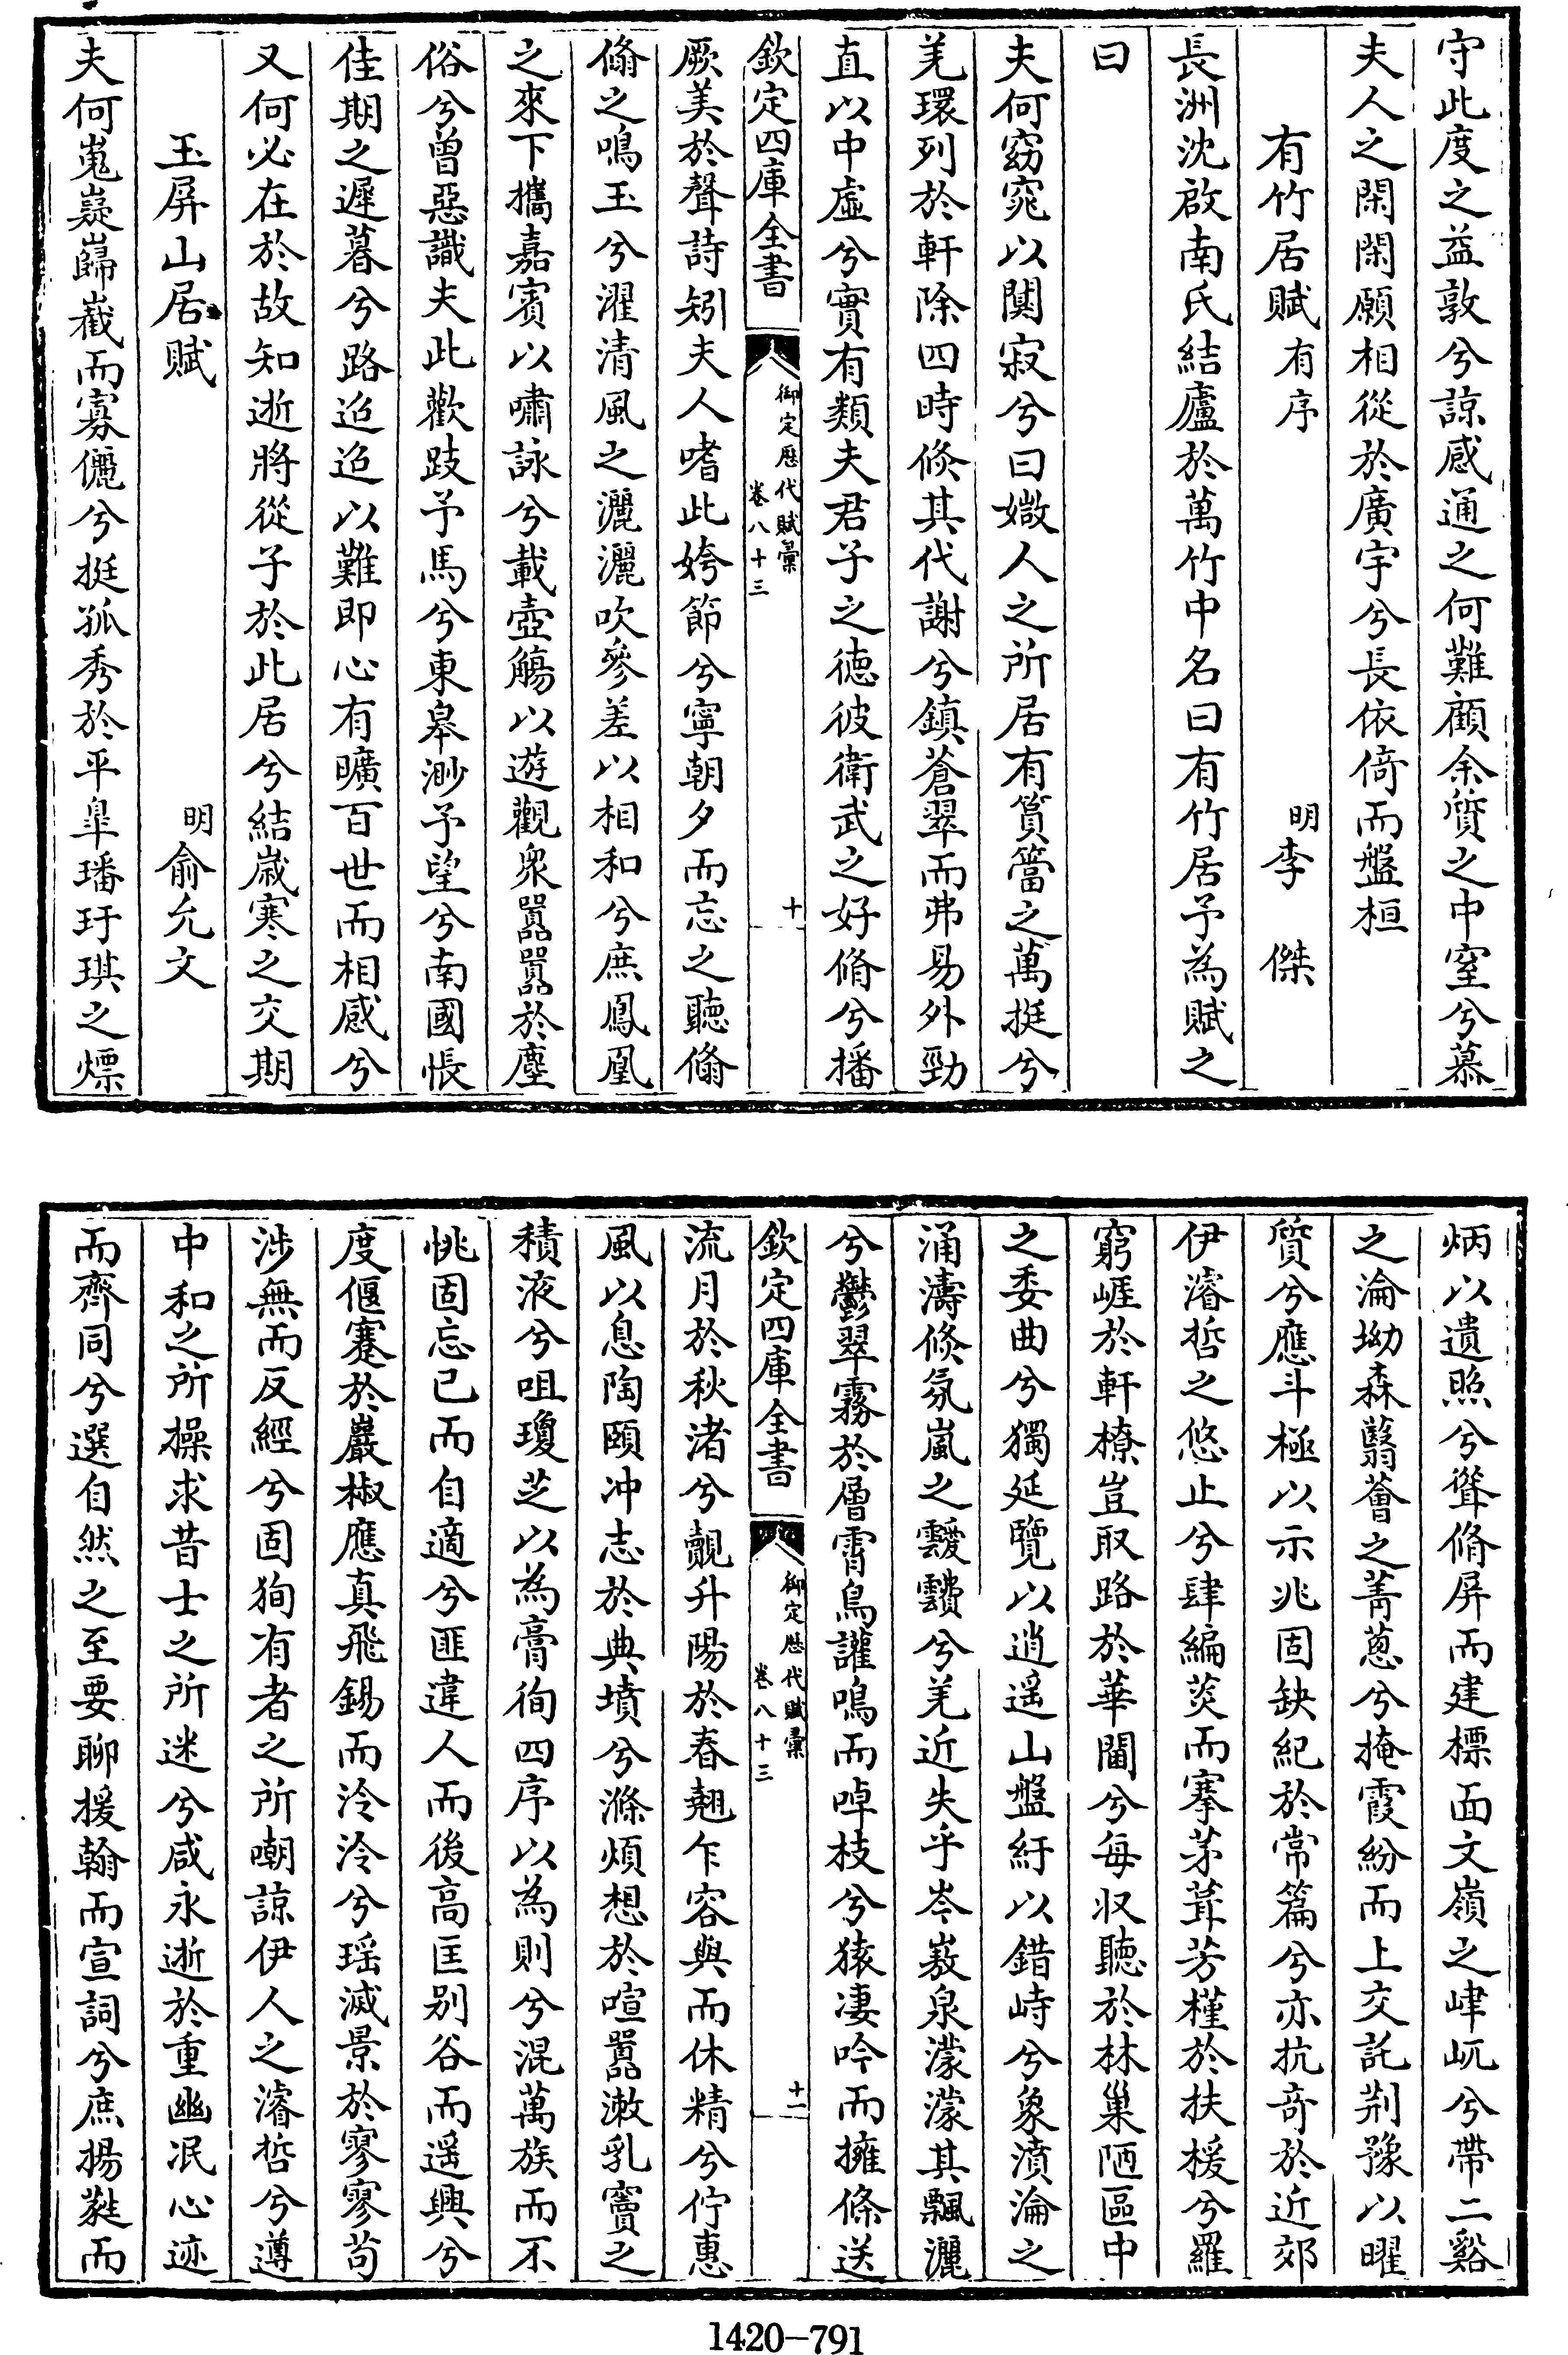 守此度之益敦兮諒感通之何難顧余質之中窒兮慕
夫人之閑閑願相從於廣宇兮長依倚而盤桓
有竹居賦有序 明李傑
長洲沈啟南氏結廬於萬竹中名曰有竹居予為賦之
曰
夫何窈窕以闃寂兮曰媺人之所居有篔簹之萬挺兮
羌環列於軒除四時倐其代謝兮鎮蒼翠而弗易外勁
直以中虛兮實有類夫君子之徳彼衛武之好脩兮播
欽定四庫全書 御定歷代賦彙 卷八十三 十
厥美於聲詩矧夫人嗜此姱節兮寧朝夕而忘之聽翛
翛之鳴玉兮濯清風之灑灑吹參差以相和兮庶鳳凰
之來下攜嘉賓以嘯詠兮載壺觴以遊觀衆嚚嚚於塵
俗兮曽惡識夫此歡跂予馬兮東皋渺予望兮南國悵
佳期之遲暮兮路迢迢以難即心有曠百世而相感兮
又何必在於故知逝將從子於此居兮結嵗寒之交期
玉屏山居賦 明俞允文
夫何嵬嶷巋嶻而寡儷兮挺孤秀於平臯璠玗琪之熛
炳以遺照兮聳脩屏而建標面文嶺之峍屼兮帶二谿
之淪坳森翳薈之菁蔥兮掩霞紛而上交託荆豫以曜
質兮應斗極以示兆固缺紀於常篇兮亦抗奇於近郊
伊濬哲之悠止兮肆編茨而搴茅葺芳槿於扶楥兮羅
窮崕於軒橑豈取路於華閫兮每収聽於林巢陋區中
之委曲兮獨延覽以逍遥山盤紆以錯峙兮象濆淪之
涌濤倐氛嵐之靉靅兮羌近失乎岑嶅泉濛濛其飄灑
兮鬱翠霧於層霄鳥讙鳴而啅枝兮猿凄吟而擁條送
欽定四庫全書 御定歷代賦彙 卷八十三 十一
流月於秋渚兮覿升陽於春翹乍容與而休精兮佇惠
風以息陶頤冲志於典墳兮滌煩想於喧嚚潄乳竇之
積液兮咀瓊芝以為膏徇四序以為則兮混萬族而不
恌固忘已而自適兮匪違人而後高匡别谷而遥興兮
度偃蹇於巖椒應真飛錫而泠泠兮瑶滅景於寥寥苟
涉無而反經兮固狥有者之所嘲諒伊人之濬哲兮遵
中和之所操求昔士之所迷兮咸永逝於重幽冺心迹
而齊同兮選自然之至要聊援翰而宣詞兮庶揚蕤而
1420-791